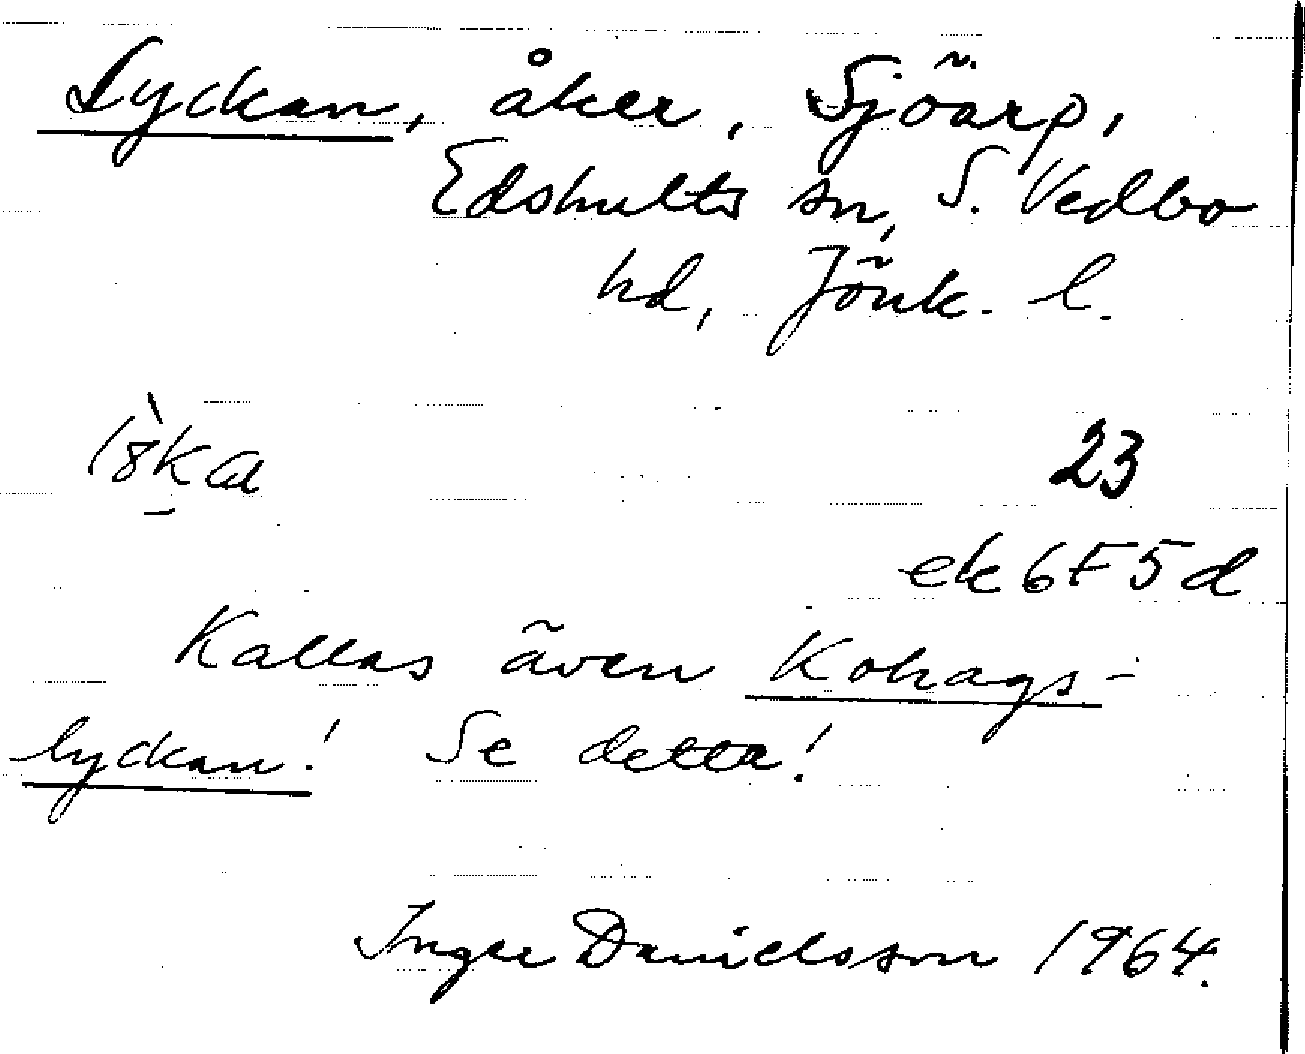 Lyckan, åker, Sjöarp,
Edshults sn, S. Vedbo
hd, Jönk. l.
23
ek 6F5d
Kallas även Kohags-
lyckan! Se detta!
Inger Danielsson 1964.